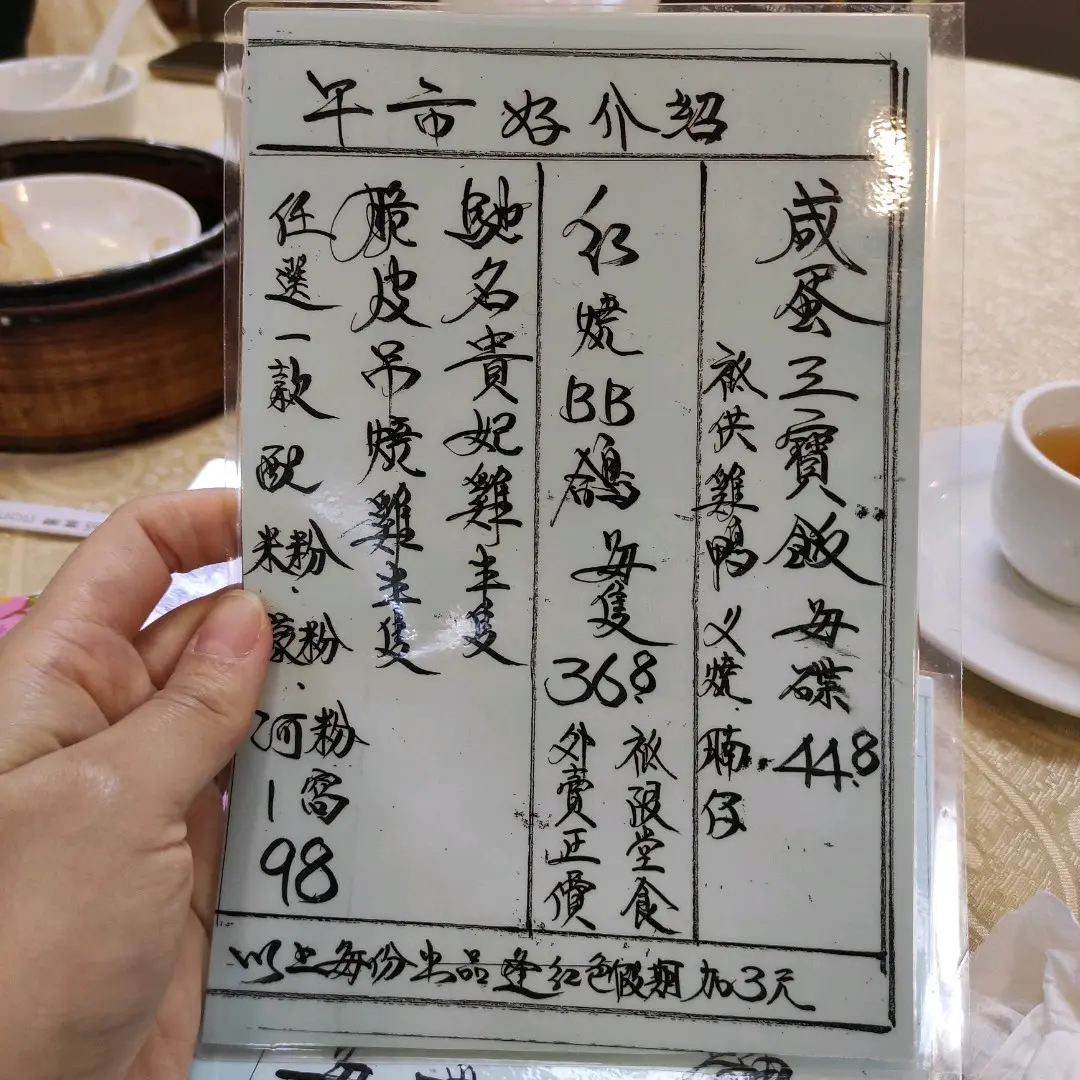 午市好介紹
咸蛋三寶飯 每碟 44.8
祇供雞鴨乂燒.腩仔
紅燒BB鴿 每隻 36.8
祇限堂食
外賣正價
馳名貴妃雞半隻
脆皮吊燒雞半隻
任選一款配米粉、蒙粉、河粉 1窩 98
以上每份出品逢紅色假期加3元